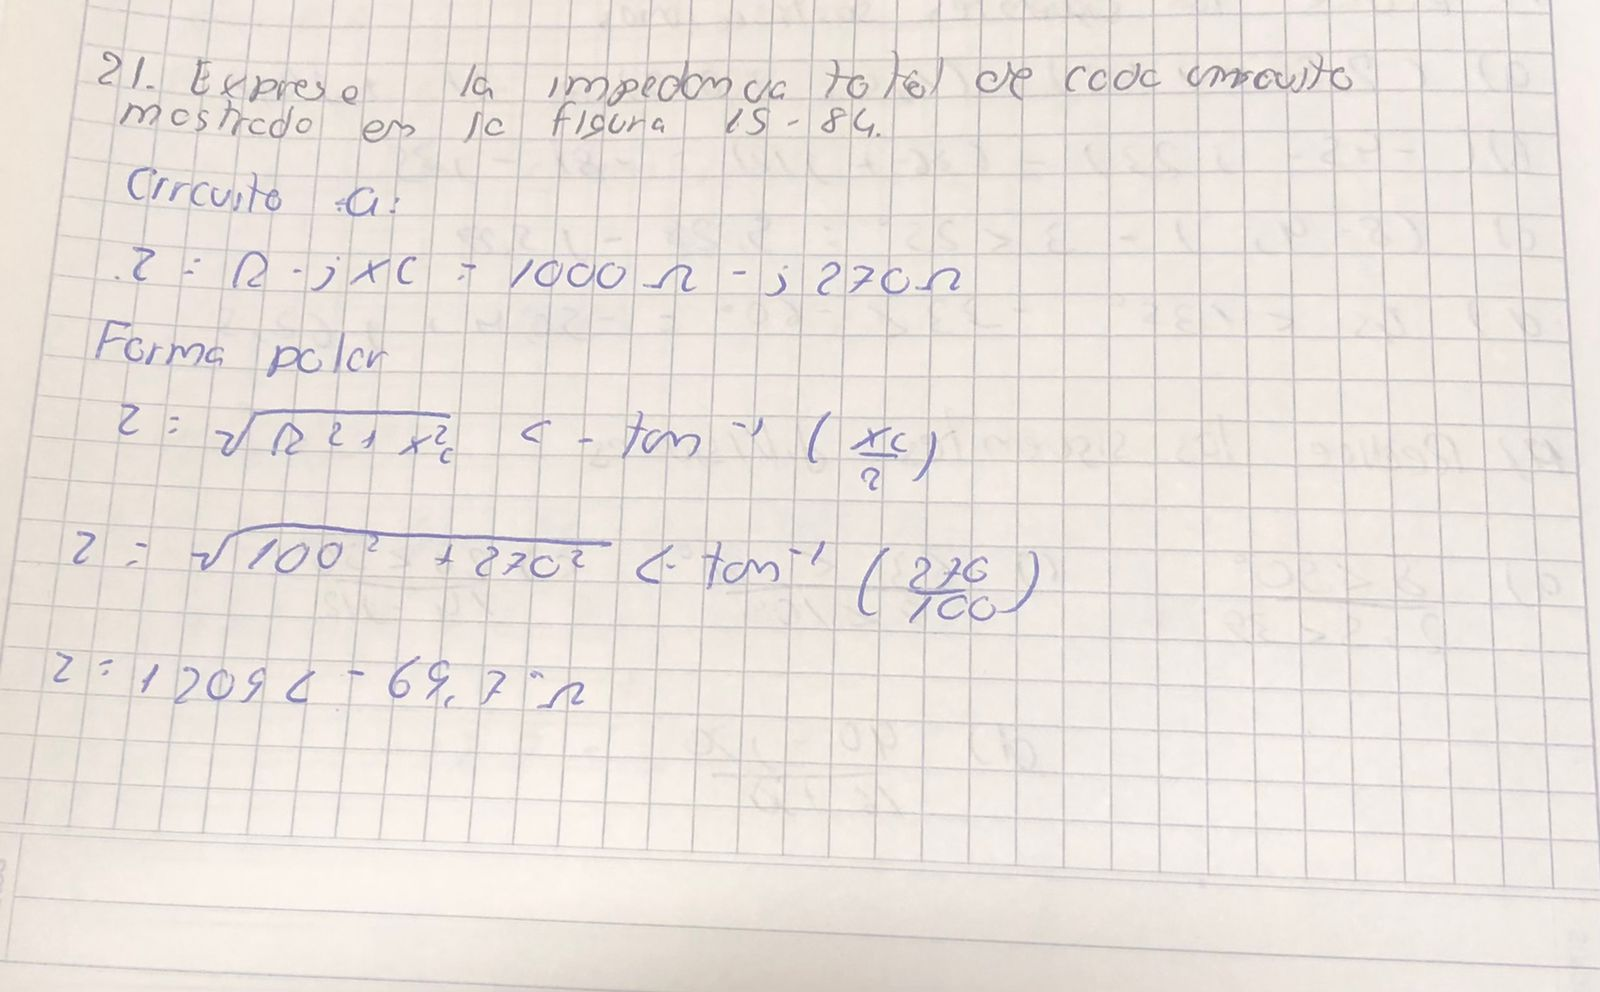 21. Exprese la impedancia total de cada circuito
mostrado en la figura 15-84.
Circuito a:
Z = R - jXC = 1000 Ω - j 270Ω
Forma polar
Z = √R² + X²c < - tan⁻¹ (XC/R)
Z = √100² + 270² < - tan⁻¹ (270/100)
Z = 1209 < - 69,7° Ω